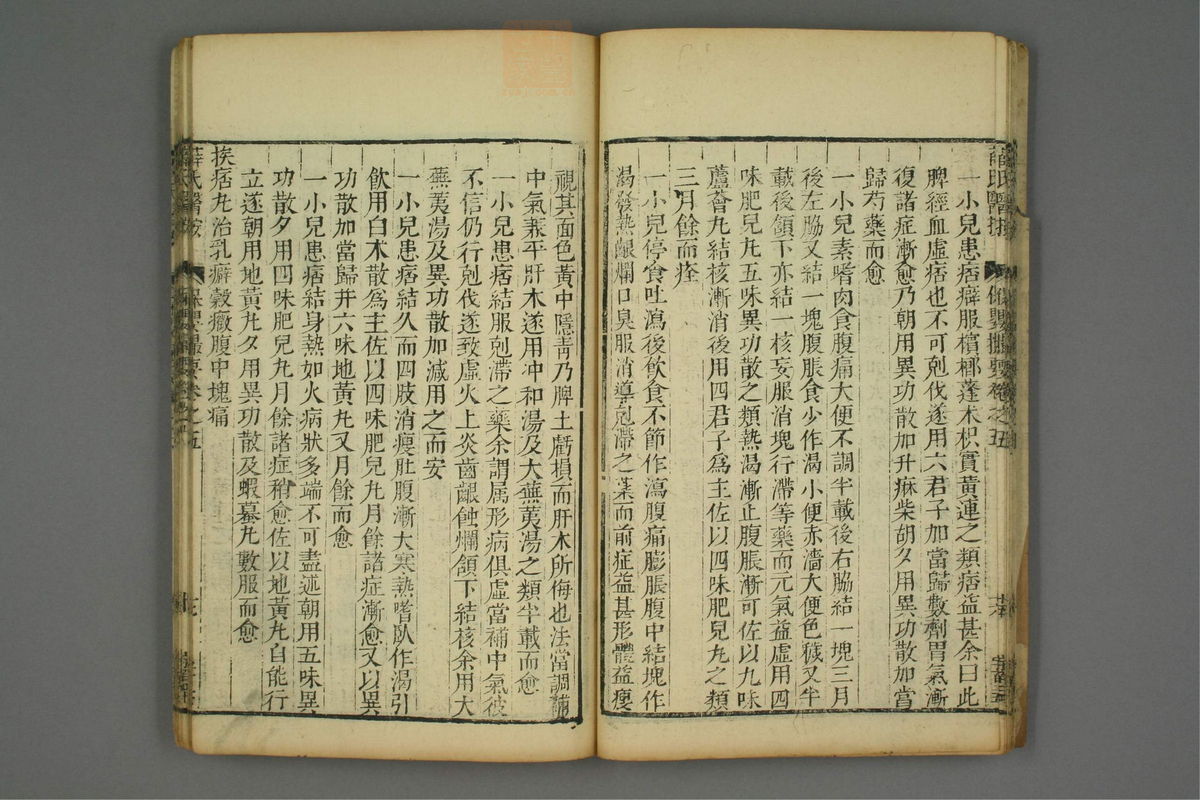 薛氏醫按 保嬰撮要卷之五
一小兒患痞癖服檳榔蓬术枳實黃連之類病益甚余曰此
脾經血虛痞也不可剋伐遂用六君子加當歸數劑胃氣漸
復諸症漸愈乃朝用異功散加升痳柴胡夕用異功散加當
歸芍藥而愈
一小兒素嗜肉食腹痛大便不調半載後右脇結一塊三月
後左脇又結一塊腹脹食少作渴小便赤濇大便色穢又半
載後頷下亦結一核妄服消塊行滯等藥而元氣益虛用四
味肥兒丸五味異功散之類熱渴漸止腹脹漸可佐以九味
蘆薈丸結核漸消後用四君子爲主佐以四味肥兒丸之類
三月餘而痊
一小兒停食吐瀉後飲食不節作瀉腹痛膨脹腹中結塊作
渴發熱齦爛口臭服消導剋滯之藥而前症益甚形體益瘦
視其面色黃中隱青乃脾土虧損而肝木所侮也法當調補
中氣兼平肝木遂用冲和湯及大蕪荑湯之類半載而愈
一小兒患痞結服剋滯之藥余謂属形病俱虛當補中氣彼
不信仍行剋伐遂致虛火上炎齒齦蝕爛頷下結核余用大
蕪荑湯及異功散加減用之而安
一小兒患痞結久而四肢消瘦肚腹漸大寒熱嗜臥作渴引
飲用白术散爲主佐以四味肥兒丸月餘諸症漸愈又以異
功散加當歸并六味地黃丸又月餘而愈
一小兒患痞結身熱如火病狀多端不可盡述朝用五味異
功散夕用四味肥兒丸月餘諸症稍愈佐以地黃丸自能行
立遂朝用地黃丸夕用異功散及蝦蟇丸數服而愈
挨痞丸治乳癖穀癥腹中塊痛
薛氏醫按 保嬰撮要卷之五